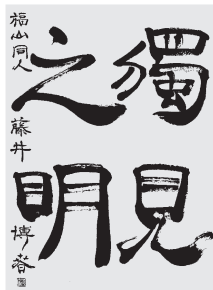 獨見
之明
福山同人 藤井博春